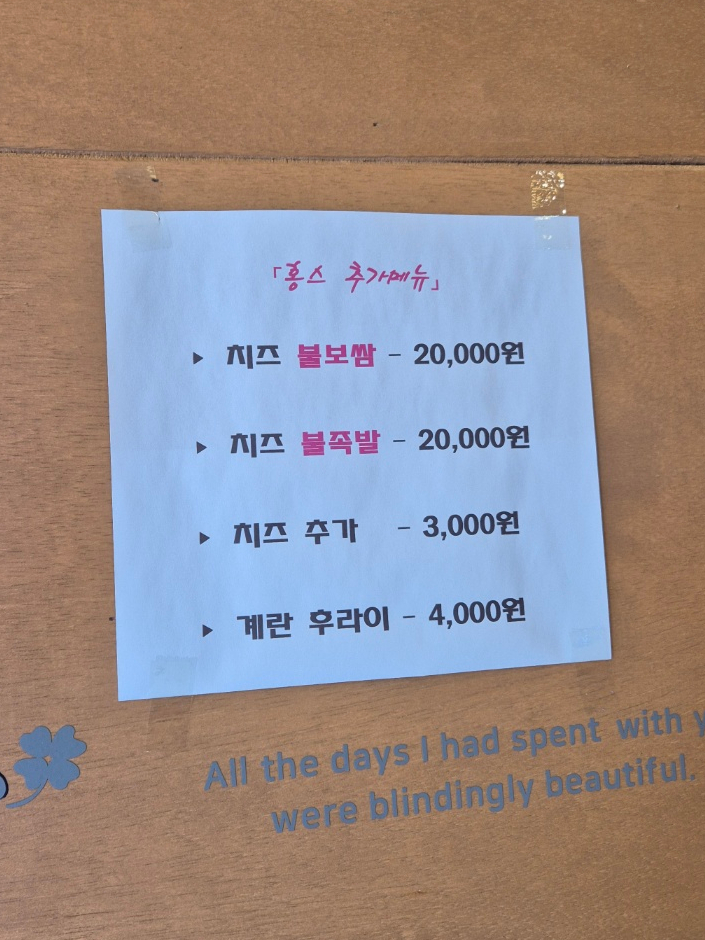 「홍스 추가메뉴」
▶ 치즈 불보쌈 - 20,000원
▶ 치즈 불족발 - 20,000원
▶ 치즈 추가 - 3,000원
▶ 계란 후라이 - 4,000원
All the days I had spent with
were blindingly beautiful.